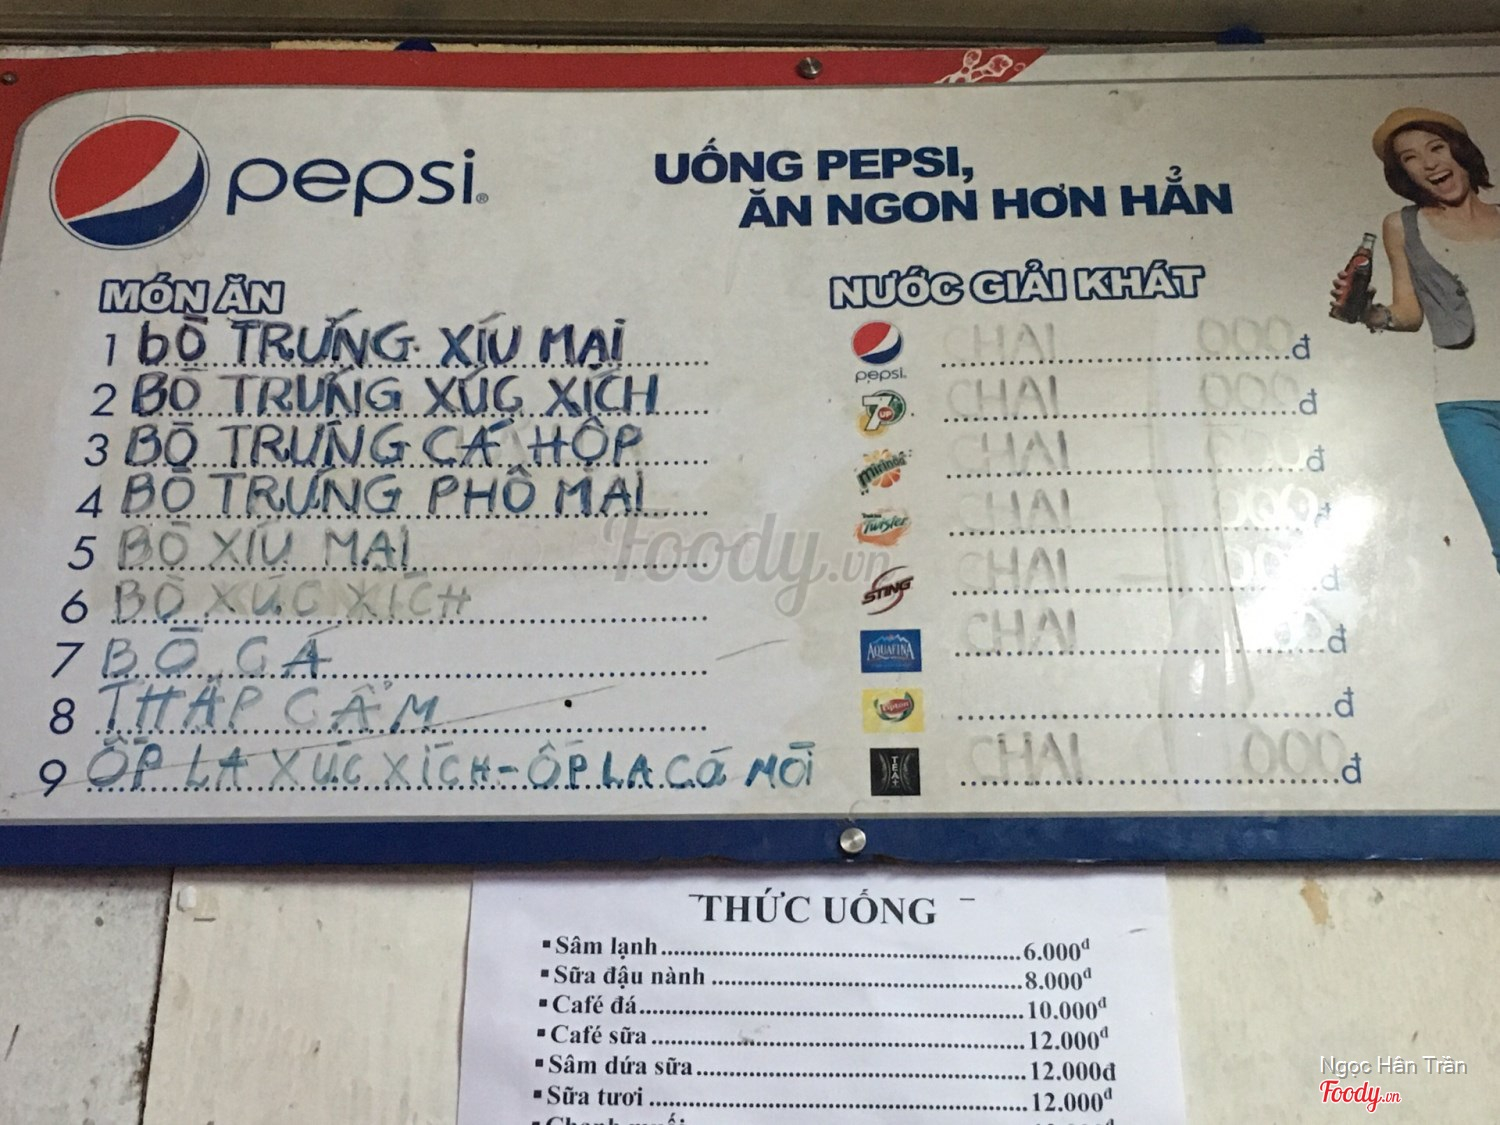 pepsi®
UỐNG PEPSI,
ĂN NGON HƠN HẲN
MÓN ĂN
1 BÒ TRỨNG XÍU MẠI
2 BÒ TRỨNG XÚC XÍCH
3 BÒ TRỨNG CÁ HỘP
4 BÒ TRỨNG PHÔ MAI
5 BÒ XÍU MẠI
6 BÒ XÚC XÍCH
7 BÒ CÁ
8 THẬP CẨM
9 ỐP LA XÚC XÍCH - ỐP LA CÁ MÒI
NƯỚC GIẢI KHÁT
pepsi. CHAI 000 đ
7UP CHAI 000 đ
mirinda CHAI 000 đ
Twister CHAI 000 đ
STING CHAI 000 đ
AQUAFINA CHAI đ
Lipton đ
TEA+ CHAI 000 đ
Foody.vn
THỨC UỐNG
Sâm lạnh 6.000đ
Sữa đậu nành 8.000đ
Café đá 10.000đ
Café sữa 12.000đ
Sâm dứa sữa 12.000đ
Sữa tươi 12.000đ
Ngọc Hân Trần
Foody.vn